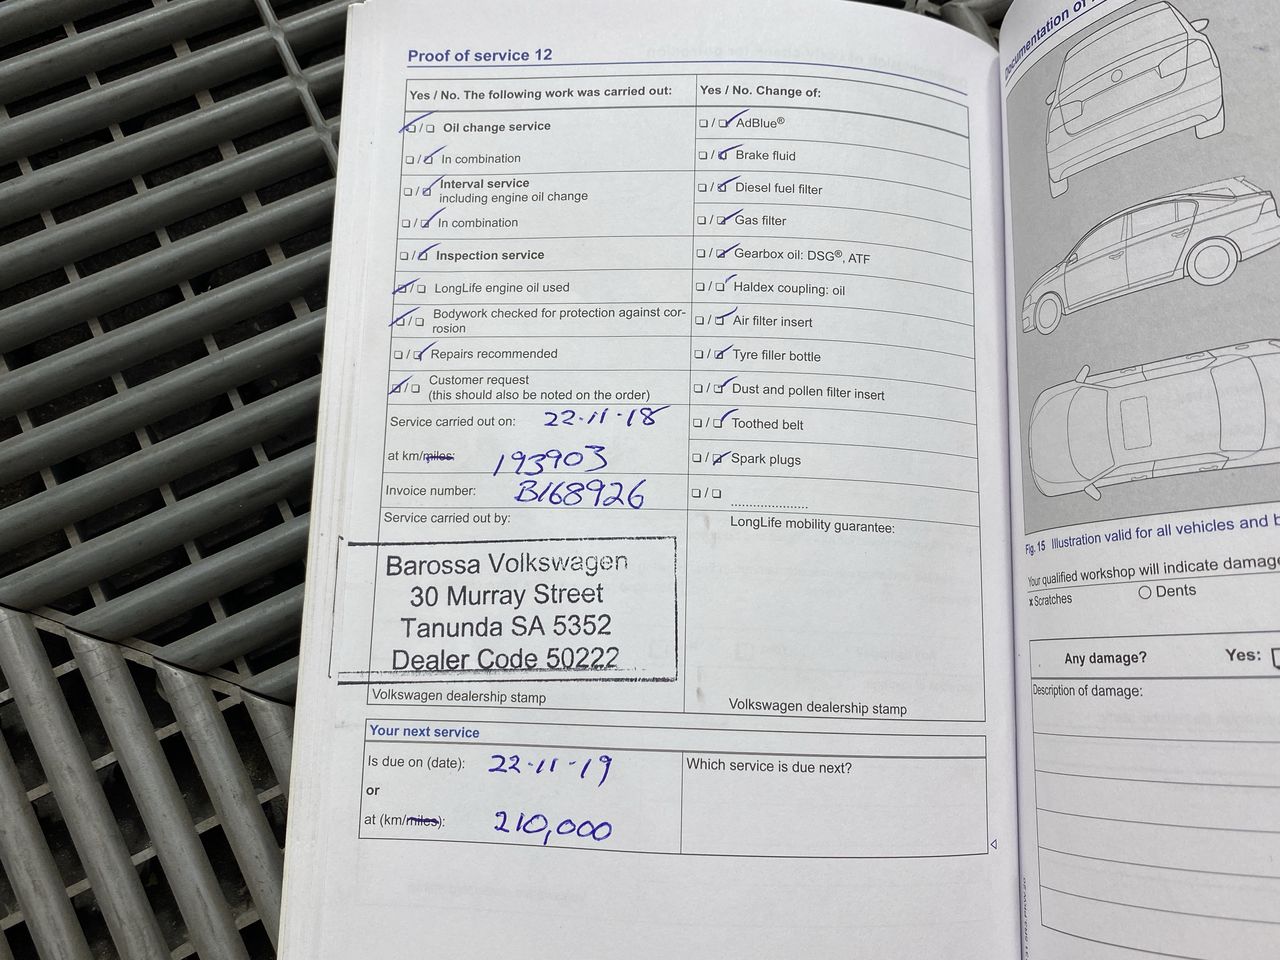 Proof of service 12
Yes / No. The following work was carried out:
☑ / ☐ Oil change service
☐ / ☑ In combination
☐ / ☑ Interval service
including engine oil change
☐ / ☑ In combination
☐ / ☑ Inspection service
☑ / ☐ LongLife engine oil used
☑ / ☐ Bodywork checked for protection against cor-
rosion
☐ / ☑ Repairs recommended
☑ / ☐ Customer request
(this should also be noted on the order)
Service carried out on: 22-11-18
at km/miles: 193903
Invoice number: B168926
Service carried out by:
Barossa Volkswagen
30 Murray Street
Tanunda SA 5352
Dealer Code 50222
Volkswagen dealership stamp
Yes / No. Change of:
☐ / ☑ AdBlue®
☐ / ☑ Brake fluid
☐ / ☑ Diesel fuel filter
☐ / ☑ Gas filter
☐ / ☑ Gearbox oil: DSG®, ATF
☐ / ☑ Haldex coupling: oil
☐ / ☑ Air filter insert
☐ / ☑ Tyre filler bottle
☐ / ☑ Dust and pollen filter insert
☐ / ☑ Toothed belt
☐ / ☑ Spark plugs
☐ / ☐ ......................
LongLife mobility guarantee:
Volkswagen dealership stamp
Your next service
Is due on (date): 22-11-19
or
at (km/miles): 210,000
Which service is due next?
Documentation of
Fig. 15 Illustration valid for all vehicles and
Your qualified workshop will indicate damage
x Scratches
○ Dents
Any damage? Yes:
Description of damage: